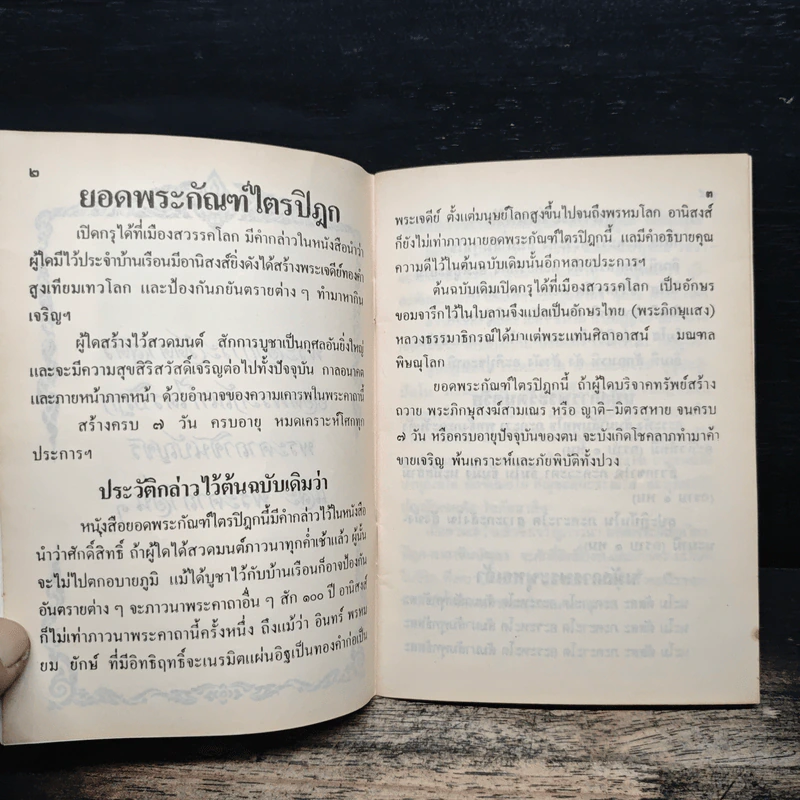 ๒
ยอดพระกัณฑ์ไตรปิฎก
เปิดกรุได้ที่เมืองสวรรคโลก มีคำกล่าวในหนังสือนำว่า
ผู้ใดมีไว้ประจำบ้านเรือนมีอานิสงส์ยิ่งดังได้สร้างพระเจดีย์ทองคำ
สูงเทียมเทวโลก และป้องกันภยันตรายต่าง ๆ ทำมาหากิน
เจริญฯ
ผู้ใดสร้างไว้สวดมนต์ สักการบูชาเป็นกุศลอันยิ่งใหญ่
และจะมีความสุขสิริสวัสดิ์เจริญต่อไปทั้งปัจจุบัน กาลอนาคต
และภายหน้าภาคหน้า ด้วยอำนาจของความเคารพในพระคาถานี้
สร้างครบ ๗ วัน ครบอายุ หมดเคราะห์โศกทุก
ประการฯ
ประวัติกล่าวไว้ต้นฉบับเดิมว่า
หนังสือยอดพระกัณฑ์ไตรปิฎกนี้มีคำกล่าวไว้ในหนังสือ
นำว่าศักดิ์สิทธิ์ ถ้าผู้ใดได้สวดมนต์ภาวนาทุกค่ำเช้าแล้ว ผู้นั้น
จะไม่ไปตกอบายภูมิ แม้ได้บูชาไว้กับบ้านเรือนก็อาจป้องกัน
อันตรายต่าง ๆ จะภาวนาพระคาถาอื่น ๆ สัก ๑๐๐ ปี อานิสงส์
ก็ไม่เท่าภาวนาพระคาถานี้ครั้งหนึ่ง ถึงแม้ว่า อินทร์ พรหม
ยม ยักษ์ ที่มีอิทธิฤทธิ์จะเนรมิตแผ่นอิฐเป็นทองคำก่อเป็น
๓
พระเจดีย์ ตั้งแต่มนุษย์โลกสูงขึ้นไปจนถึงพรหมโลก อานิสงส์
ก็ยังไม่เท่าภาวนายอดพระกัณฑ์ไตรปิฎกนี้ แลมีคำอธิบายคุณ
ความดีไว้ในต้นฉบับเดิมนั้นอีกหลายประการฯ
ต้นฉบับเดิมเปิดกรุได้ที่เมืองสวรรคโลก เป็นอักษร
ขอมจารึกไว้ในใบลานจึงแปลเป็นอักษรไทย (พระภิกษุแสง)
หลวงธรรมาธิกรณ์ได้มาแต่พระแท่นศิลาอาสน์ มณฑล
พิษณุโลก
ยอดพระกัณฑ์ไตรปิฎกนี้ ถ้าผู้ใดบริจาคทรัพย์สร้าง
ถวาย พระภิกษุสงฆ์สามเณร หรือ ญาติ-มิตรสหาย จนครบ
๗ วัน หรือครบอายุปัจจุบันของตน จะบังเกิดโชคลาภทำมาค้า
ขายเจริญ พ้นเคราะห์และภัยพิบัติทั้งปวง